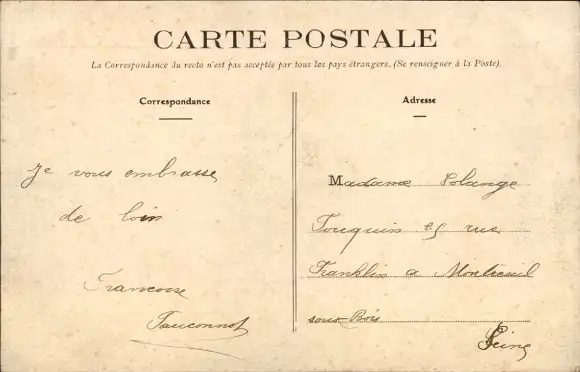 CARTE POSTALE
La Correspondance du recto n'est pas acceptée par tous les pays étrangers. (Se renseigner à la Poste).
Correspondance
Je vous embrasse
de loin
Francoise
Fauconnot
Adresse
Madame Solange
Touquin 25 rue
Franklin a Montreuil
sous-Bois
Seine